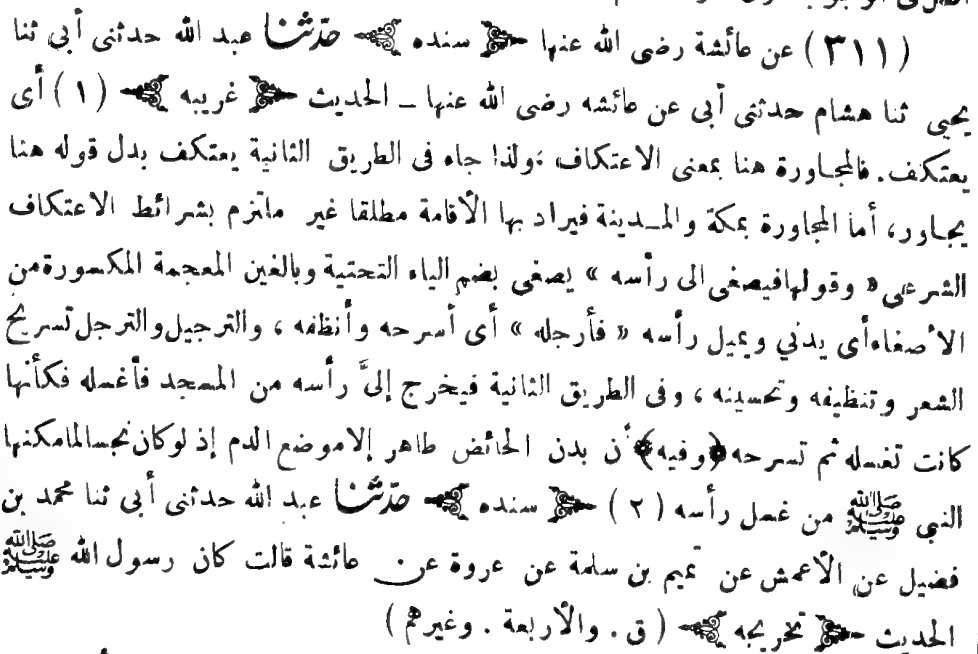 (٣١١) عن عائشة رضى الله عنها سنده حدّثنا عبد الله حدثنى أبى ثنا
يحيى ثنا هشام حدثنى أبى عن عائشه رضى الله عنها ـ الحديث غريبه (١) أى
يعتكف. فالمجاورة هنا بمعنى الاعتكاف ، ولذا جاء فى الطريق الثانية يعتكف بدل قوله هنا
يجاور، أما المجاورة بمكة والمدينة فيراد بها الأقامة مطلقا غير ملتزم بشرائط الاعتكاف
الشرعى « وقولها فيصغى الى رأسه » يصغى بضم الياء التحتية وبالغين المعجمة المكسورة من
الأصغاء أى يدني ويميل رأسه « فأرجله » أى أسرحه وأنظفه ، والترجيل والترجل تسريح
الشعر وتنظيفه وتحسينه ، وفى الطريق الثانية فيخرج إلىَّ رأسه من المسجد فأغسله فكأنها
كانت تغسله ثم تسرحه ﴿وفيه﴾ أن بدن الحائض طاهر إلا موضع الدم إذ لو كان نجسا لما مكنها
النبى ﷺ من غسل رأسه (٢) سنده حدّثنا عبد الله حدثنى أبى ثنا محمد بن
فضيل عن الأعمش عن تميم بن سلمة عن عروة عن عائشة قالت كان رسول الله ﷺ
الحديث تخريجه (ق. والأربعة. وغيرهم)